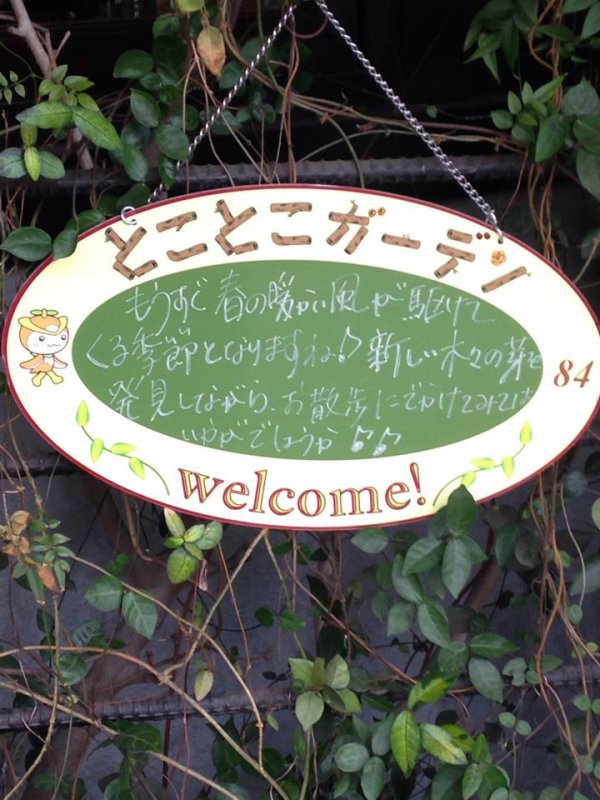 とことこガーデン
もうすぐ春の暖かい風が駆けて
くる季節となりますね♪新しい木々の芽を
発見しながら、お散歩にでかけてみては
いかがでしょうか♪♪
84
welcome!